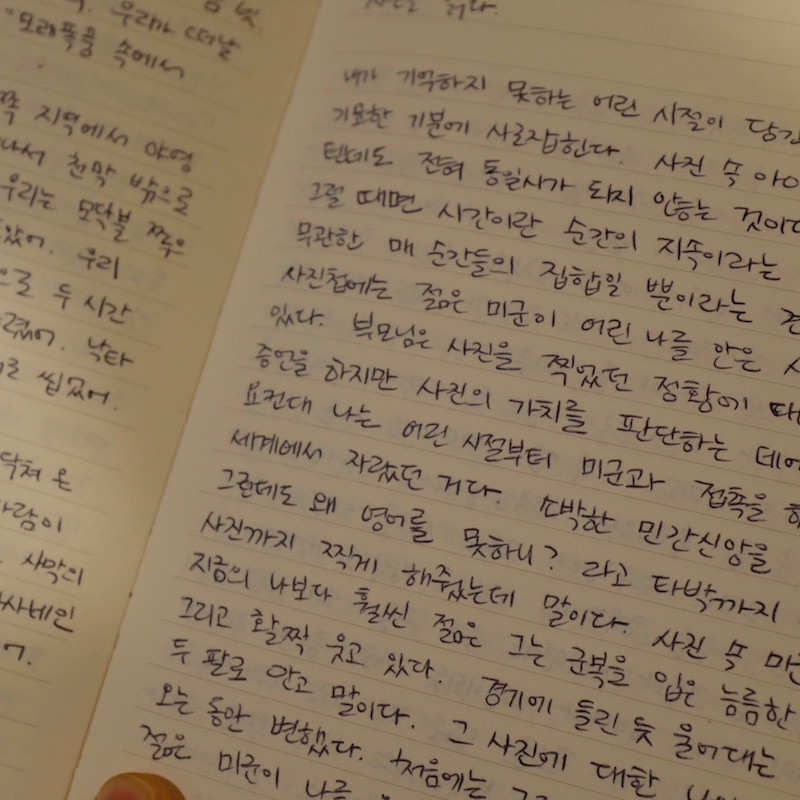 우리가 떠날
"모래폭풍 속에서
쪽 지역에서 야영
천막 밖으로
우리는 모닥불 쪽은
우리
두 시간
낙타
씹었어.
닥쳐 온
사막의
읽다.
내가 기억하지 못하는 어린 시절이 담긴
기묘한 기분에 사로잡힌다. 사진 속
텐데도 전혀 동일시가 되지 않는 것이다
그럴 때면 시간이란 순간의 지속이라는
무관한 매 순간들의 집합일 뿐이라는
사진첩에는 젊은 미군이 어린 나를 안은
있다. 부모님은 사진을 찍었던 정황에
증언을 하지만 사진의 가치를 판단하는
요컨대 나는 어린 시절부터 미군과 접촉을
세계에서 자랐던 거다. 또박한 민간신앙을
그런데도 왜 영어를 못하니? 라고 타박까지
사진까지 찍게 해줬는데 말이다. 사진 속
지금의 나보다 훨씬 젊은 그는 군복을 입은 늠름한
그리고 활짝 웃고 있다. 경기에 들린 듯 울어대는
두 팔로 안고 말이다. 그 사진에 대한
오는 동안 변했다. 처음에는
젊은 미군이 나를